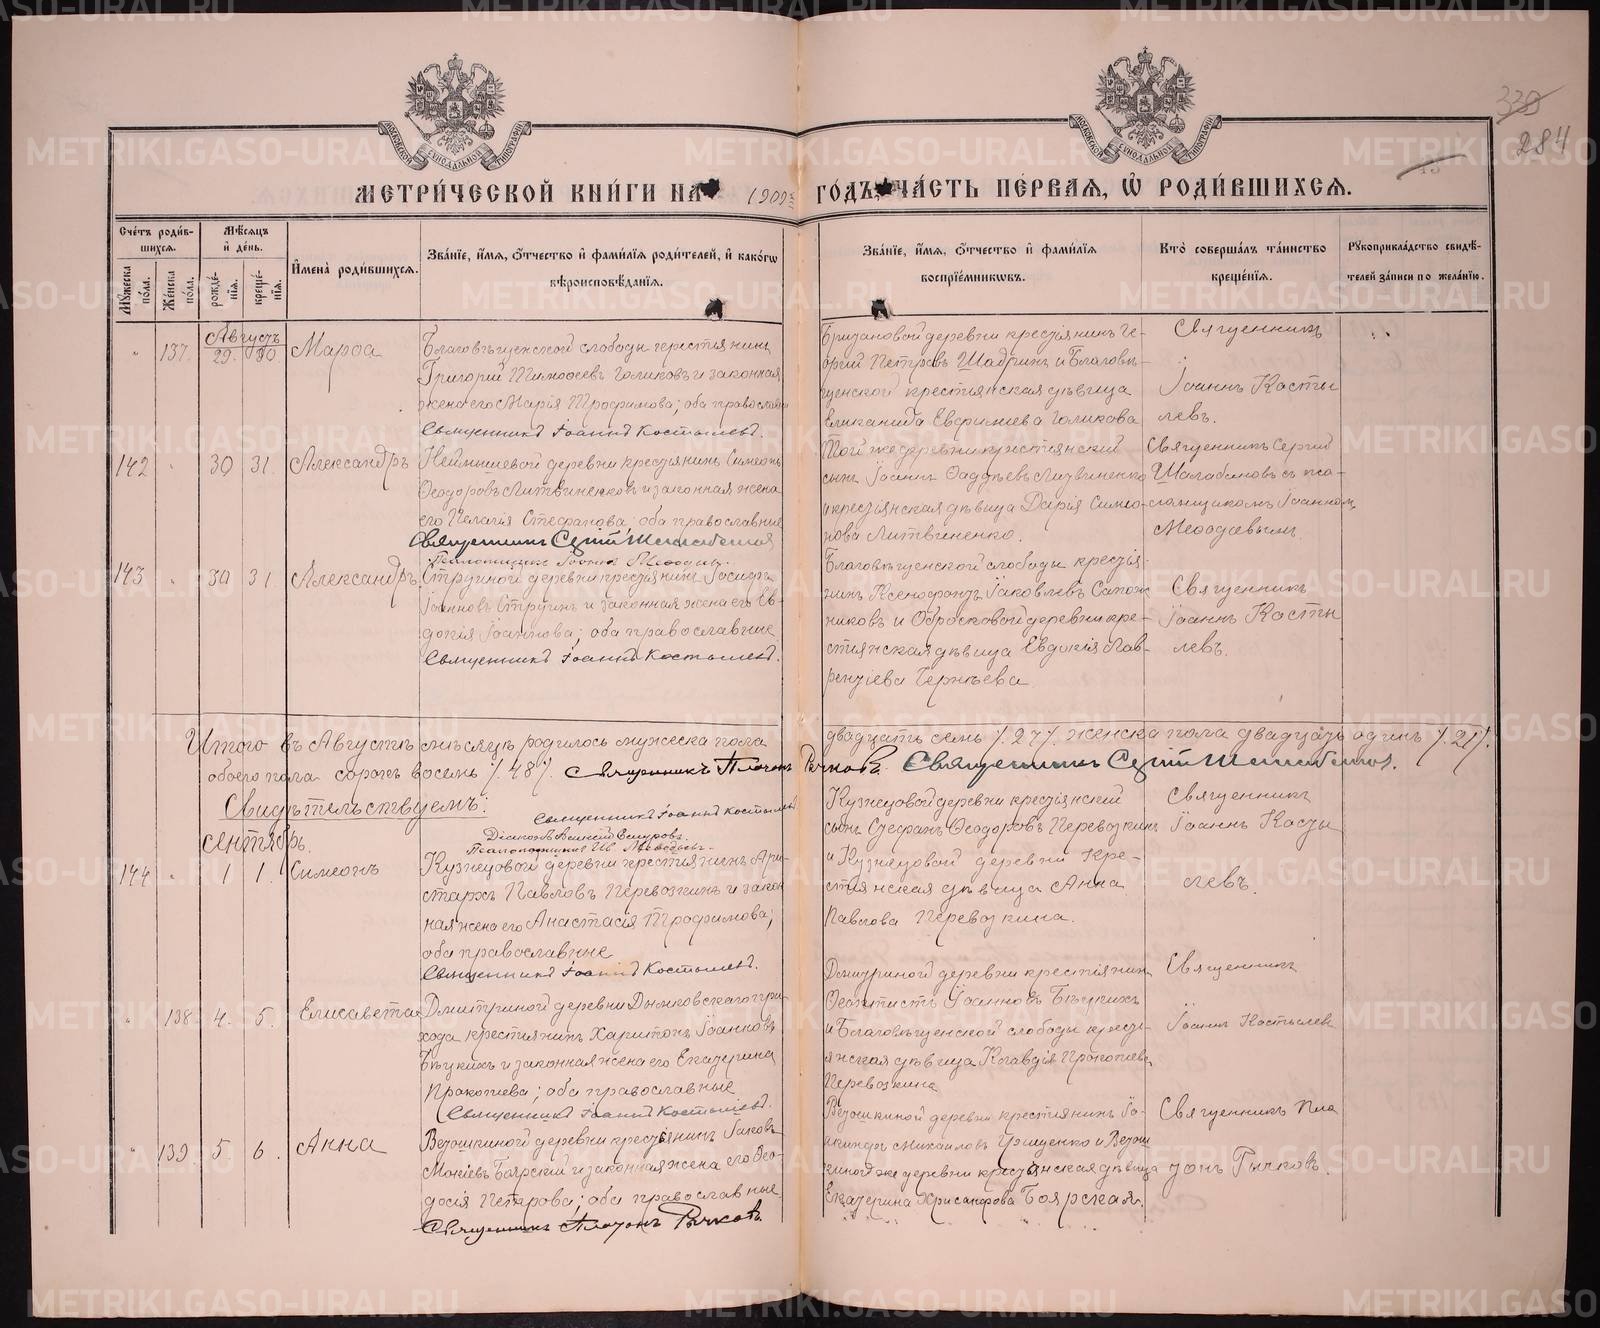 330
284
МОСКОВСКОЙ СѴНОДАЛЬНОЙ ТИПОГРАФІИ
МОСКОВСКОЙ СѴНОДАЛЬНОЙ ТИПОГРАФІИ
МЕТРИ́ЧЕСКОЙ КНИ́ГИ НА 1909 ГО́ДЪ, ЧА́СТЬ ПЕ́РВАЯ, Ѡ҆ РОДИ́ВШИХСЯ.
Сче́тъ роди́вшихся.
Мꙋ́жеска по́ла.
Же́нска по́ла.
Мѣ́сяцъ и҆ де́нь.
рожде́нїя.
креще́нїя.
И҆мена̀ роди́вшихся.
Зва́нїе, и҆́мя, ѻ҆́тчество и҆ фами́лїя роди́телей, и҆ како́гѡ вѣроисповѣ́данїя.
Зва́нїе, и҆́мя, ѻ҆́тчество и҆ фами́лїя воспрїе́мникѡвъ.
Кто̀ соверша́лъ та́инство креще́нїя.
Рꙋкоприкла́дство свидѣ́телей за́писи по жела́нїю.
Августъ
137. 29. 30 Марѳа
Благовѣщенской слободы крестьянинъ
Григорій Тимоѳеевъ Голиковъ и законная
жена его Марія Трофимова; оба православн
Священникъ Іоаннъ Костылевъ.
Бризановой деревни крестьянинъ Ге-
оргій Петровъ Шадринъ и Благовѣ-
щенской крестьянская дѣвица
Еликанида Евфимиева Голикова
Священникъ
Іоаннъ Косты
левъ.
142 30 31. Александръ
Неймышевой деревни крестьянинъ Симеонъ
Ѳеодоровъ Литвиненковъ и законная жена
его Пелагія Стефанова; оба православные
Священникъ Сергій Шалабановъ
Псаломщикъ Іоаннъ
Той же деревни крестьянскій
сынъ Іоаннъ Ѳаддѣевъ Литвиненко
и крестьянская дѣвица Дарія Симео-
нова Литвиненко.
Священникъ Сергій
Шалабановъ съ пса-
ломщикомъ Іоанномъ
143 30 31. Александръ
Стругиной деревни крестьянинъ Іосифъ
Іоанновъ Стругинъ и законная жена его Ев-
докія Іоаннова; оба православные
Священникъ Іоаннъ Костылевъ.
Благовѣщенской слободы крестья-
нинъ Ксенофонтъ Іаковлевъ Сапож
никовъ и Обросковой деревни кре-
стьянская дѣвица Евдокія Лав-
рентіева Чернѣева
Священникъ
Іоаннъ Косты
левъ.
Итого въ Августѣ мѣсяцѣ родилось мужеска пола двадцать семь /.27/. женска пола двадцать одинъ /.21/.
обоего пола сорокъ восемь /.48/. Священникъ Платонъ Рычковъ. Священникъ Сергій Шалабановъ.
Свидѣтельствуемъ:
Священникъ Іоаннъ Костылевъ
Діаконъ
Псаломщикъ Ів.
Сентябрь.
144 1 1. Симеонъ
Кузнецовой деревни крестьянинъ Ари-
стархъ Павловъ Перевозкинъ и закон
ная жена его Анастасія Трофимова;
оба православные
Священникъ Іоаннъ Костылевъ.
Кузнецовой деревни крестьянскій
сынъ Стефанъ Ѳеодоровъ Перевозкинъ
и Кузнецовой деревни кре-
стьянская дѣвица Анна
Павлова Перевозкина.
Священникъ
Іоаннъ Косты
левъ.
138 4. 5. Елисавета
Дмитриной деревни Дымковскаго при-
хода крестьянинъ Харитонъ Іоанновъ
Бѣукихъ и законная жена его Екатерина
Прокопіева; оба православные
Священникъ Іоаннъ Костылевъ.
Дмитриной деревни крестьянин
Ѳеоктистъ Іоанновъ Бѣукихъ
и Благовѣщенской слободы кресть-
янская дѣвица Клавдія Прокопіева
Перевозкина
Священникъ
Іоаннъ Костылев
139. 5. 6. Анна
Ветошкиной деревни крестьянинъ Іаковъ
Мокіевъ Боярскій и законная жена его Ѳео-
досія Петрова; оба православные.
Священникъ Платонъ Рычковъ.
Ветошкиной деревни крестьянинъ Іо-
акимъ Михаиловъ Грищенко и Ветош
киной же деревни крестьянская дѣвица
Екатерина Хрисанфова Боярская.
Священникъ Пла
тонъ Рычковъ.
METRIKI.GASO-URAL.RU